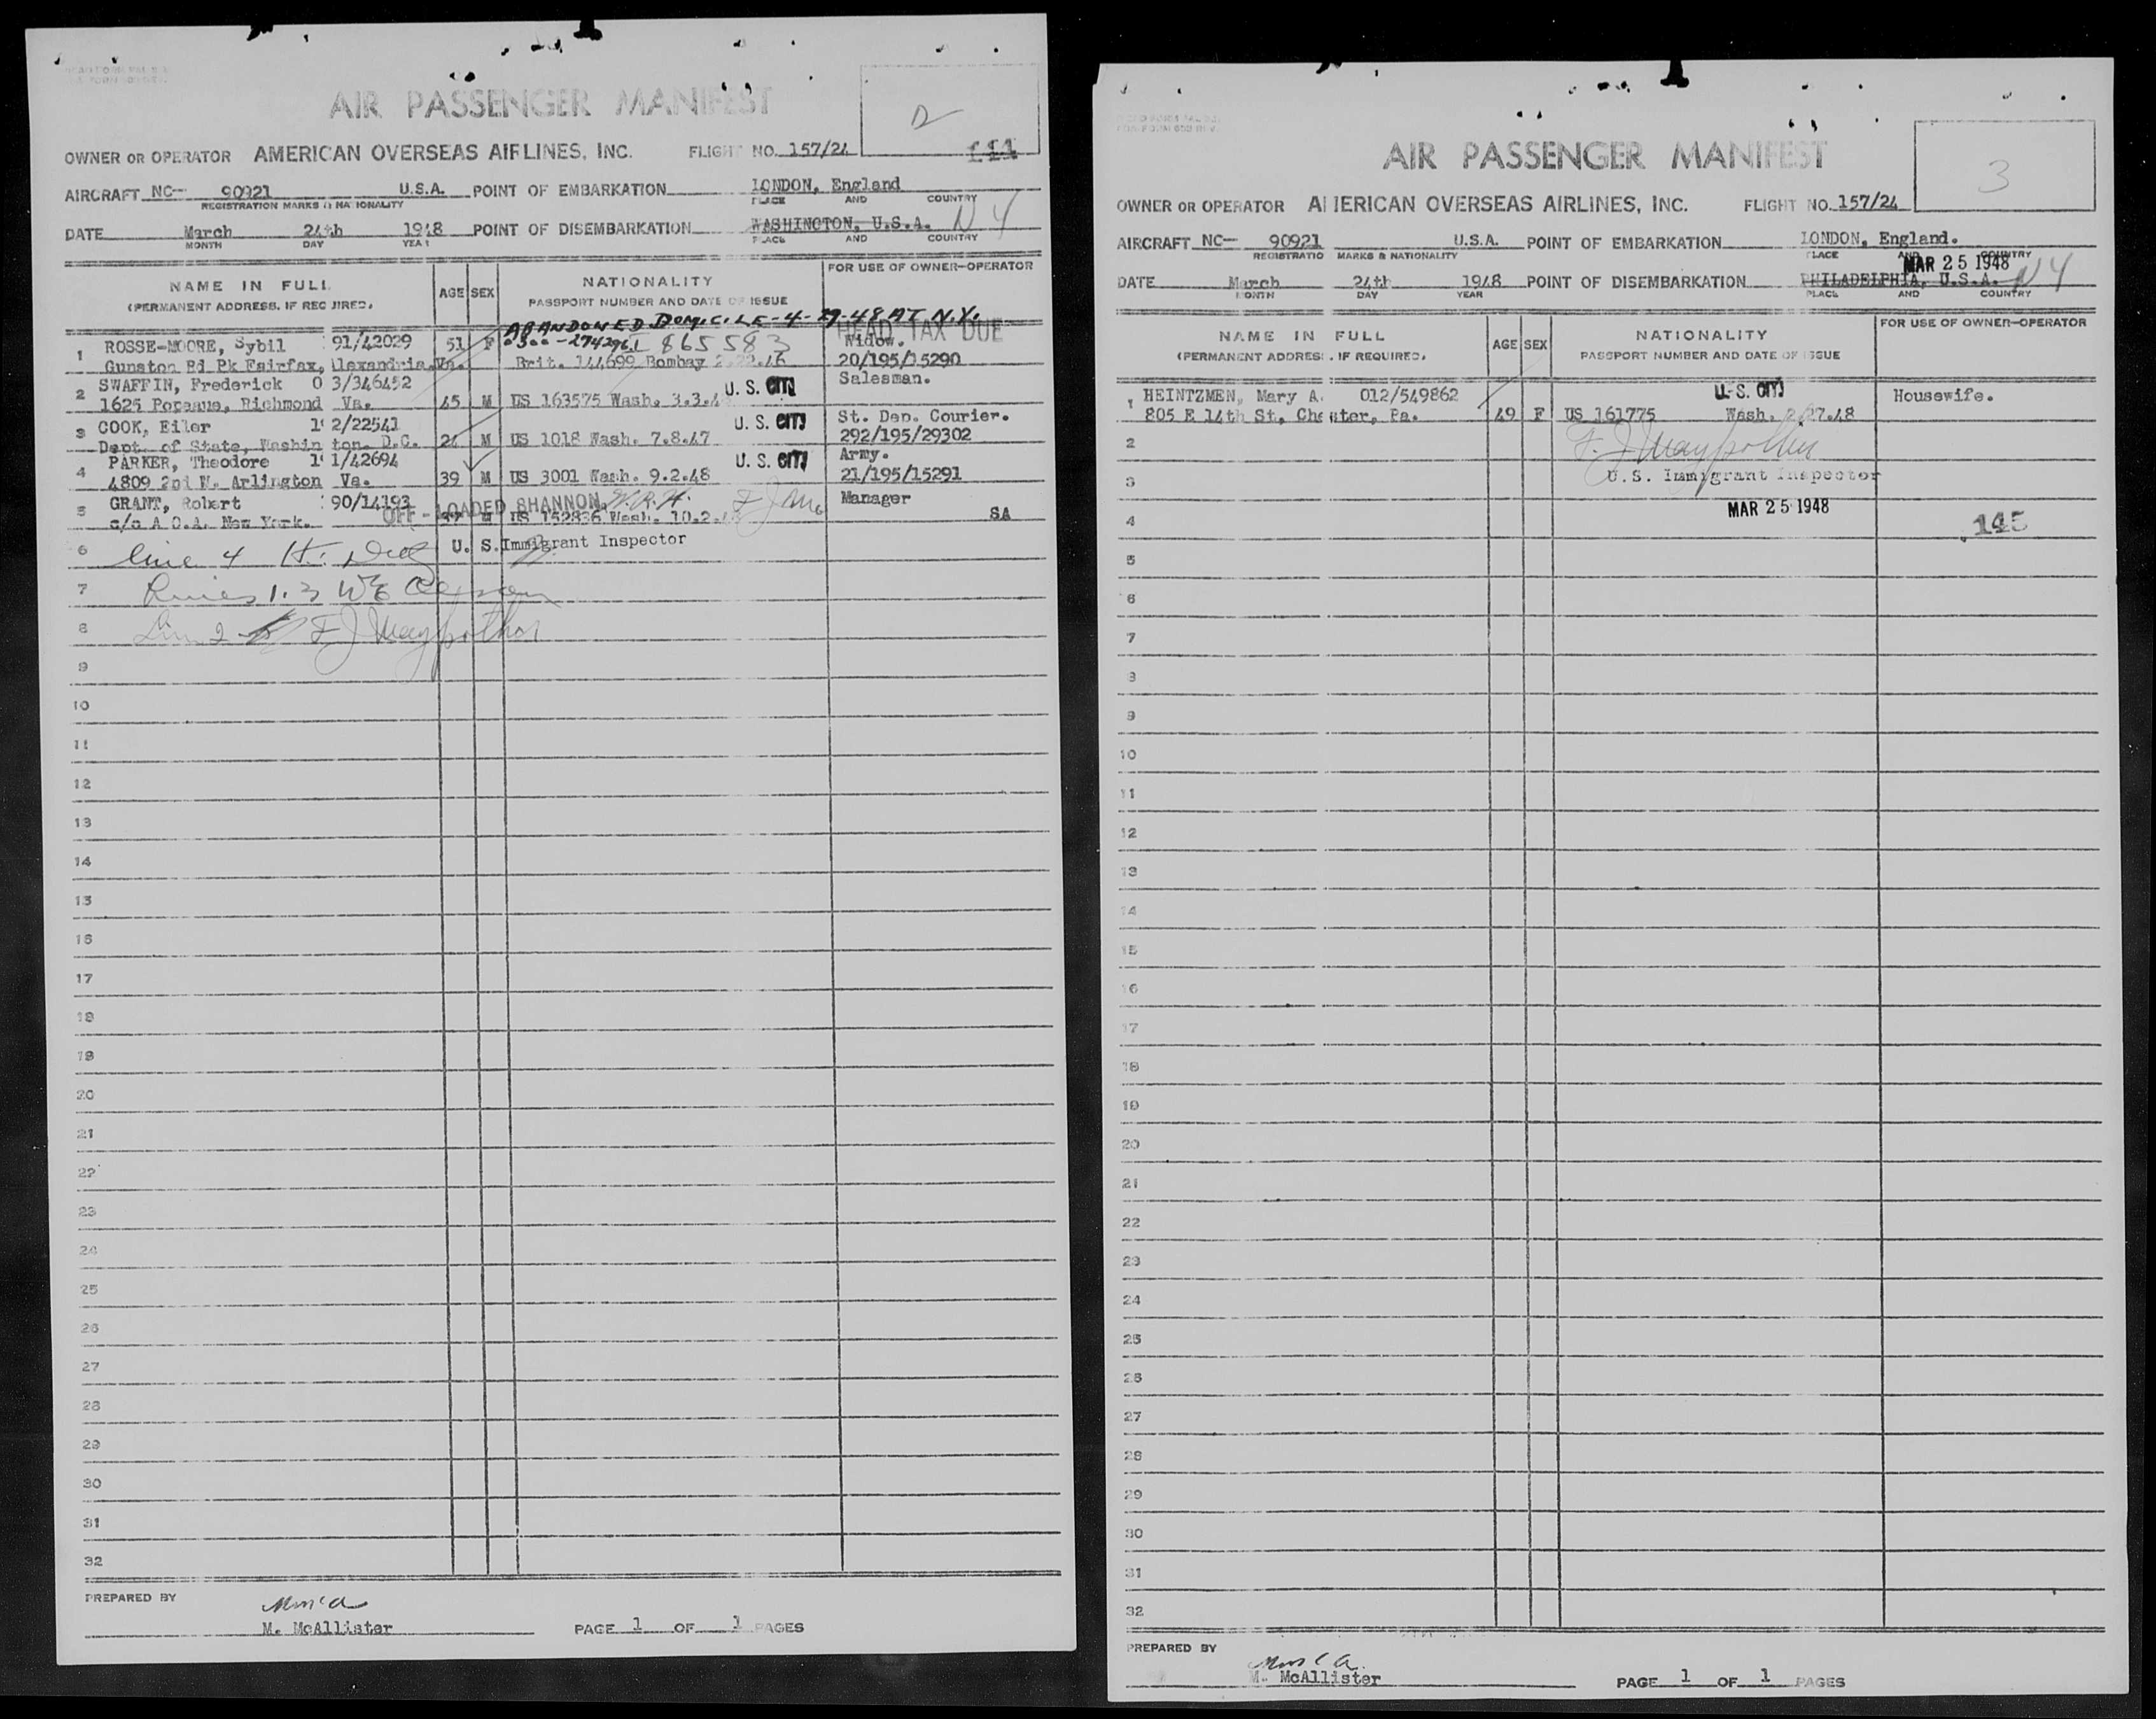 AIR PASSENGER MANIFEST
2
OWNER OR OPERATOR AMERICAN OVERSEAS AIRLINES, INC. FLIGHT NO. 157/24
AIRCRAFT NC- 90921 U.S.A. POINT OF EMBARKATION LONDON, England
REGISTRATION MARKS & NATIONALITY PLACE AND COUNTRY
DATE March 24th 1948 POINT OF DISEMBARKATION WASHINGTON, U.S.A. NY
MONTH DAY YEAR PLACE AND COUNTRY
NAME IN FULL AGE SEX NATIONALITY FOR USE OF OWNER-OPERATOR
(PERMANENT ADDRESS, IF REQUIRED) PASSPORT NUMBER AND DATE OF ISSUE
ABANDONED DOMICILE-4-29-48 AT N.Y.
HEAD TAX DUE
1 ROSSE-MOORE, Sybil 91/42029 51 F 865583 Widow.
Gunston Rd Pk Fairfax, Alexandria, Va. Brit. 144699 Bombay 20/195/15290
2 SWAFFIN, Frederick 3/346452 U. S. CITI Salesman.
Richmond Va. 45 M US 163575 Wash. 3.3.4
3 COOK, Eiler 2/22541 U. S. CITI St. Dep. Courier.
Dept. of State, Washington, D.C. 24 M US 1018 Wash. 7.8.47 292/195/29302
4 PARKER, Theodore 1/42694 U. S. CITI Army.
Arlington Va. 39 M US 3001 Wash. 9.2.48 21/195/15291
5 GRANT, Robert 90/14193 OFF-LOADED SHANNON Manager
c/o A.O.A. New York. M US 152836 Wash. 10.2. SA
6 line 4 U. S. Immigrant Inspector
7 Lines 1.3
8 Line 2 F J Maypother
9
10
11
12
13
14
13
16
17
18
19
20
21
22
23
24
25
26
27
28
29
30
31
32
PREPARED BY
M. McAllister PAGE 1 OF 1 PAGES
AIR PASSENGER MANIFEST
3
OWNER OR OPERATOR AMERICAN OVERSEAS AIRLINES, INC. FLIGHT NO. 157/24
AIRCRAFT NC- 90921 U.S.A. POINT OF EMBARKATION LONDON, England.
REGISTRATIO MARKS & NATIONALITY PLACE AND COUNTRY
MAR 25 1948
DATE March 24th 1948 POINT OF DISEMBARKATION PHILADELPHIA, U.S.A. NY
MONTH DAY YEAR PLACE AND COUNTRY
NAME IN FULL AGE SEX NATIONALITY FOR USE OF OWNER-OPERATOR
(PERMANENT ADDRESS, IF REQUIRED) PASSPORT NUMBER AND DATE OF ISSUE
1 HEINTZMEN, Mary A. 012/549862 U. S. CITI Housewife.
805 E 14th St, Chester, Pa. 49 F US 161775 Wash. 2.27.48
2 F. J Maypother
3 U. S. Immigrant Inspector
MAR 25 1948
4 145
5
6
7
8
9
10
11
12
13
14
15
16
17
18
19
20
21
22
23
24
25
26
27
28
29
30
31
32
PREPARED BY
M. McAllister PAGE 1 OF 1 PAGES